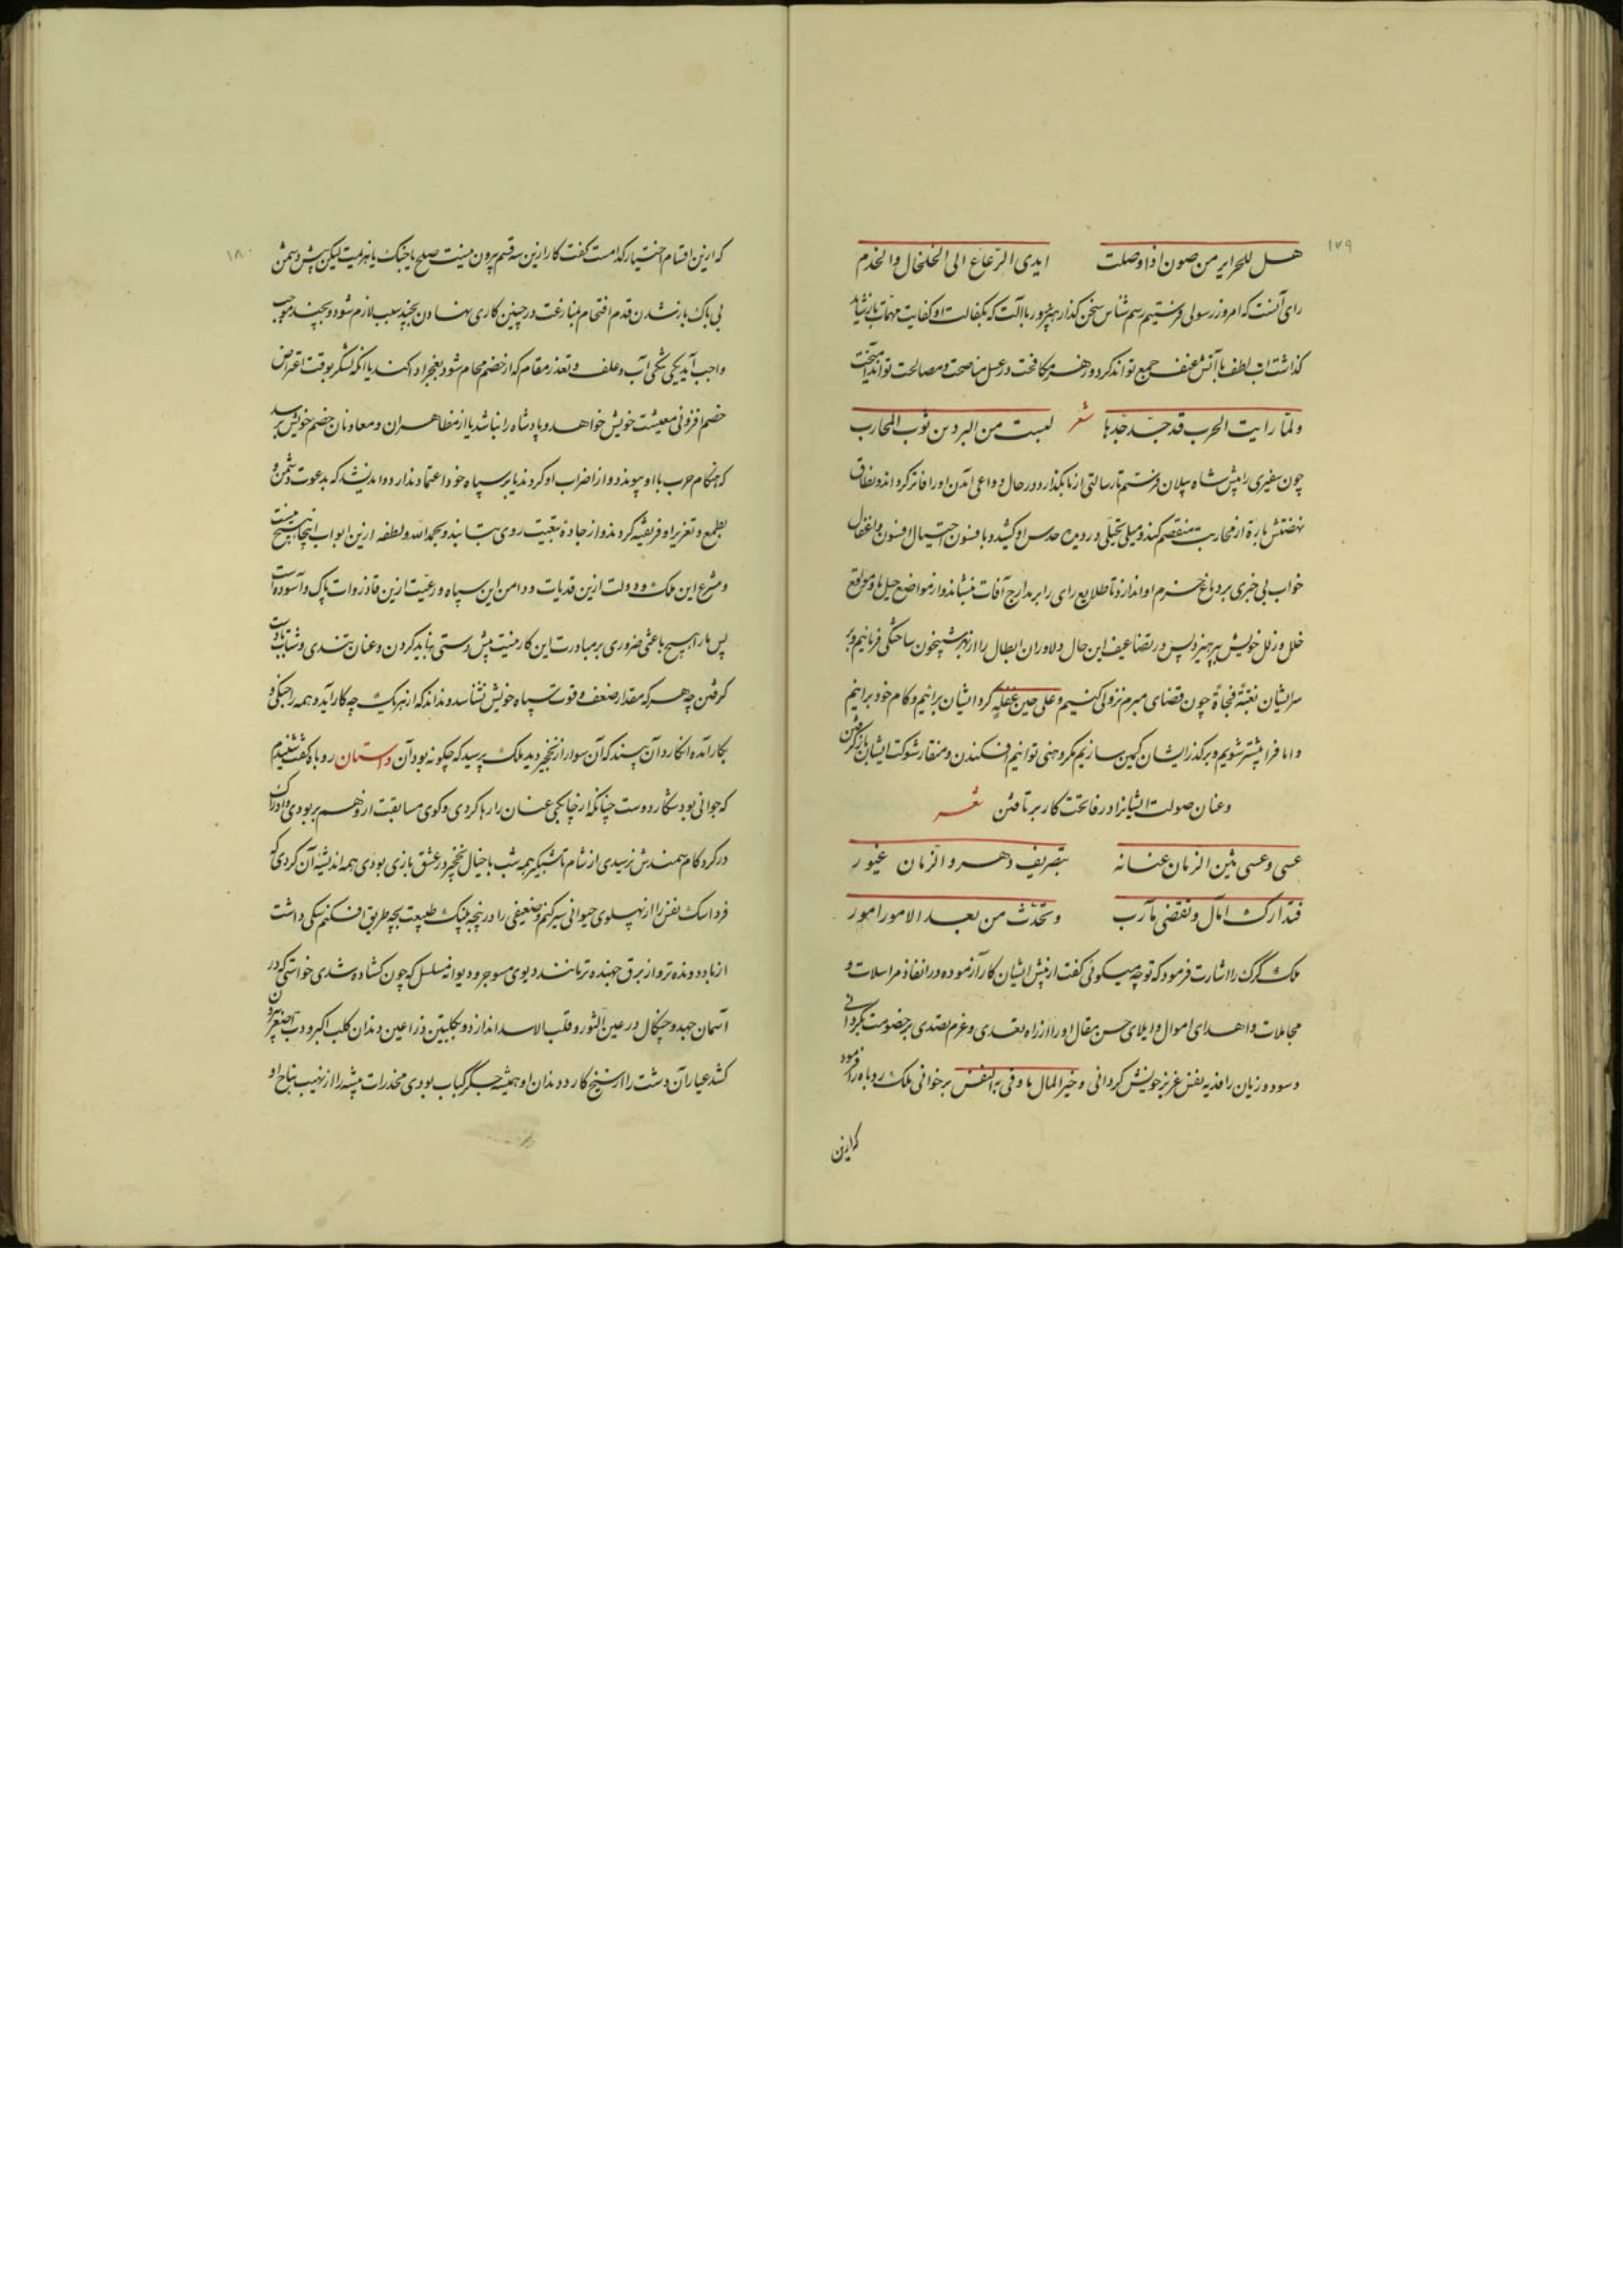 ۱۷۹
هل للحراير من صون اذا وصلت ايدى الرعاع الى الخلخال والخدم
رای آنست که امروز رسولی فرستیم رسم شناس سخن گذار هنرور باآلت که بکفالت او کفایت مهمات باز شاید
گذاشت آب لطف با آتش عنف جمع تواند کرد و زهر مکافحت در عسل مناصحت و مصالحت تواند آمیخت
ولما رايت الحرب قد جد جدها شعر لبست من البردين ثوب المحارب
چون سفیری را پیش شاه پیلان فرستیم تا رسالتی از ما بگذارد در حال دواعی آمدن او را فاتر گرداند و نطاق
نهضتش بارۀ از محاربت منفصم کند و میلی تخیلی در دیدۀ حدس او کشد و با فسون احتیال افسون و اغفال
خواب بی خبری بر دماغ حزم او اندازد تا طلایع رای را بر مدارج آفات ننشاند و از مواضع حیل ما و مواقع
خلل و زلل خویش بپرهیزد پس در تضاعیف این حال دلاوران ابطال را از بهر شبیخون ساختگی فرمائیم و بر
سر ایشان بغتة فجاة چون قضای مبرم نزولی کنیم و على حين غفلة گرد ایشان برآنیم و کام خود برانیم
و اما فرا پیشتر شویم و بر گذر ایشان کمین سازیم مگر وهنی توانیم افکندن و منقار شوکت ایشان باز گرفتن
و عنان صولت ایشانرا در فاتحت کار برتافتن شعر
عسى وعسى يثنى الزمان عنانه بتصريف دهر والزمان غيور
فتدارك امال وتقضى مآرب وتحدث من بعد الامور امور
ملک گرگ را اشارت فرمود که تو چه میگوئی گفت از پیش ایشان کارآزموده در انفاذ مراسلات و
مجاملات و اهدای اموال و ایلای حسن مقال او را از راه تعدی و عزم تصدی بر خصومت بگردانی
و سود و زیان را فدیه نفس عزیز خویش گردانی و خير المال ما وقى به النفس برخوانی ملک روباه را فرمود
که ازین
۱۸۰
که ازین اقسام اختیار کدامست گفت کار ازین سه قسم بیرون نیست صلح یا جنگ یا هزیمت لیکن پیش دشمن
بی باک باز شدن و قدم اقتحام بمنازعت در چنین کاری نهادن بچند سبب لازم شود و بچند موجب
واجب آید یکی تنگی آب و علف و تعذر مقام که از خصم محام شود بغجر اد کند یا آنکه لشکر بوقت اعتراض
خصم افزونی معیشت خویش خواهد و پادشاه را نباشد یا از مظاهران و معاونان خصم خویش بترسد
که هنگام حرب با او پیوندد و از اضراب او گردند یا بر سپاه خود اعتماد ندارد و اندیشد که بدعوت دشمن و
بطمع و تعزیر او فریفته گردند و از جادۀ تبعیت روی بتابند و بحمد الله و لطفه ازین ابواب اینجا هیچ نیست
و مشرع این ملک و دولت ازین قذیات و دامن این سپاه و رعیت ازین قاذورات پاک و آسوده است
پس ما را هیچ باعثی ضروری بر مبادرت این کار نیست پیش دستی نباید کردن و عنان بتندی و شتاب نباید
گرفتن چه هر که مقدار ضعف و قوت سپاه خویش نشناسد و نداند که از هر یک چه کار آید و همه را جنگی و
بکار آمده انگارد آن بیند که آن سوار از نخجیر دید ملک پرسید که چگونه بود آن داستان روباه گفت شنیدم
که جوانی بود شکار دوست چنانکه از چابکی عنان را رها کردی و گوی مسابقت از وهم بربودی و ادراک
در گرد گام سمندش نرسیدی از شام تا شبگیر همه شب با خیال نخجیر در عشق بازی بودی همه اندیشه آن کردی که
فردا سگ نفس را از پهلوی حیوانی سیر کنم و ضعیفی را در پنجۀ پلنگ طبیعت بچه طریق افکنم سگی داشت
از باد دونده تر و از برق جهنده تر مانند دیوی مسوجر و دیوانۀ مسلسل که چون گشاده شدی خواستی که در
آسمان جهد و چنگال در عین الثور و قلب الاسد اندازد و بکلبتین ذراعین دندان کلب اکبر و دب اصغر بیرون
کشد عیاران دشت را از سیخ کارد دندان او همیشه جگر کباب بودی مخدرات بیشه را از نهیب نباح او